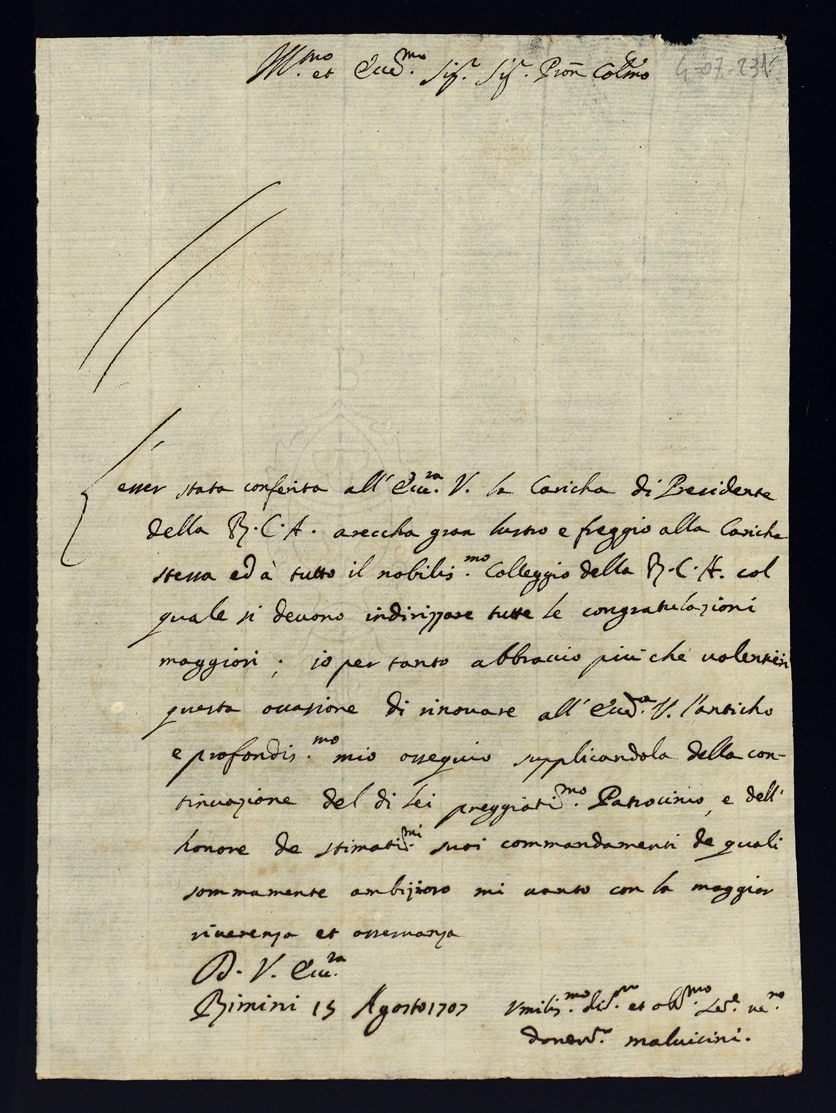 Ill.mo et Ecc.mo Sig.r Sig.r Pron Colmo
4-07-231
L'
esser stata conferita all' Ecc.za V. la Caricha di Presidente
della R. C. A. areccha gran lustro e freggio alla Caricha
stessa ed à tutto il nobilis.mo Colleggio della R. C. A. col
quale si devono indirizzare tutte le congratulazioni
maggiori ; io per tanto abbraccio più che volentieri
questa occasione di rinovare all' Ecc.za V. l'anticho
e profondis.mo mio ossequio supplicandola della con-
tinuazione del di lei preggiatis.mo Patrocinio, e dell'
honore de stimatis.mi suoi commandamenti de quali
sommamente ambizioso mi vanto con la maggior
riverenza et osservanza
D. V. Ecc.za
Rimini 15 Agosto 1707
Umilis.mo et ob.mo
malvicini.